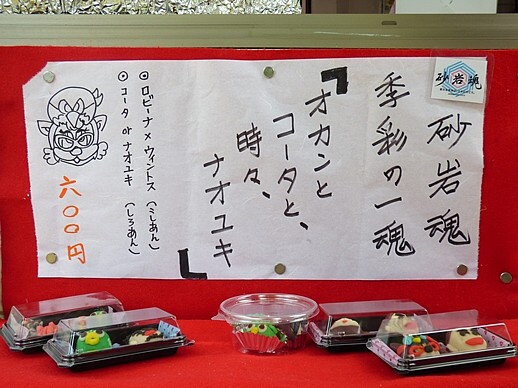 砂岩魂
砂岩魂
季彩の一魂
『オカンと
コータと、
時々、
ナオユキ』
◎ロビーナ×ウィントス(こしあん)
◎コータ or ナオユキ(しろあん)
六〇〇円